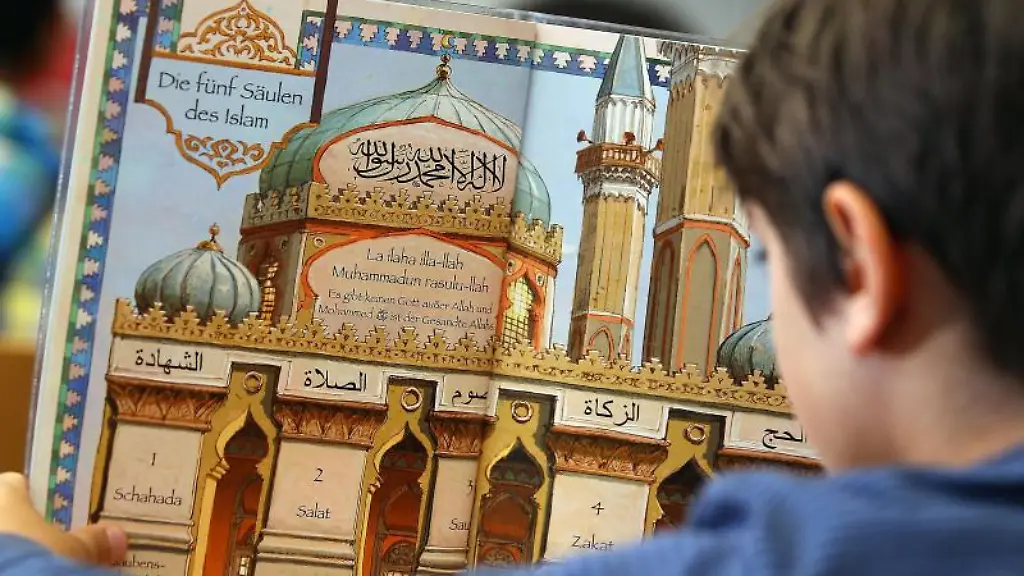 Die fünf Säulen
des Islam
لا اله الا الله محمد رسول الله
La ilaha illa-llah
Muhammadun rasulu-llah
Es gibt keinen Gott außer Allah und
Mohammed ﷺ ist der Gesandte Allahs
الشهادة
الصلاة
صوم
الزكاة
الحج
1
Schahada
2
Salat
3
Sau
4
Zakat